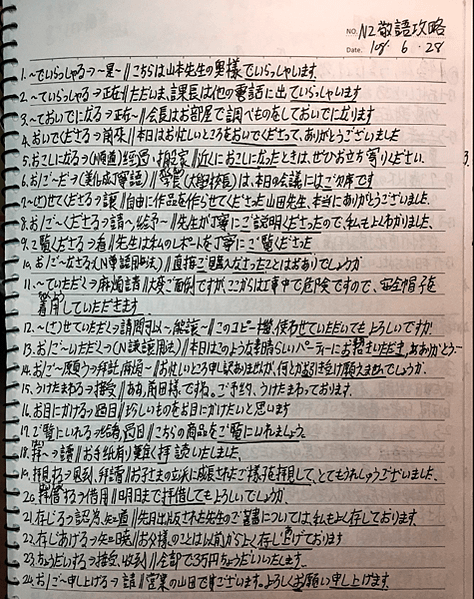 NO. N2敬語攻略
Date. 108. 6. 28
1. ~でいらっしゃる→~是~ // こちらは山本先生の奥様でいらっしゃいます.
2. ~ていらっしゃる→正在 // ただいま、課長は他の電話に出ていらっしゃいます
3. ~ておいでになる→正在~ // 会長はお部屋で調べものをしておいでになります
4. おいでくださる→前來 // 本日はお忙しいところをおいでくださって、ありがとうございました
5. おこしになる→(N順適)經過、拜訪家 // 近くにおこしになったときは、ぜひお立ち寄りください.
6. お/ご~だ→(美化成丁寧語) // 学長(大學校長)は、本日の会議にはご欠席です
7. ~(さ)せてくださる→讓 // 自由に作品を作らせてくださった山田先生、本当にありがとうございました.
8. お/ご~くださる→請~、給予~ // 先生が丁寧にご説明くださったので、私もよくわかりました、
9. ご覧くださる→看 // 先生は私のレポートを丁寧にご覧くださった
10. お/ご~なさる→(N尊語用法) // 直接ご購入なさったことはおありでしょうか
11. ~ていただく→麻煩請 // 大変ご面倒ですが、ここからは工事中で危険ですので、安全帽子を
着用していただきます
12. ~(さ)せていただく→請問可以~能讓~ // このコピー機、使わせていただいてもよろしいですか
13. お/ご~いただく→(N謙讓用法) // 本日はこのような素晴らしいパーティーにお招きいただき、ありがとう…
14. お/ご~願う→拜託、麻煩~ // お忙しいところ申し訳ありませんが、何とかお引き受け願えませんでしょうか.
15. うけたまわる→接受 // ああ、岡田様ですね。ご予約、うけたまわっております.
16. お目にかける→過目 // 珍しいものをお目にかけたいと思います
17. ご覧にいれる→給看、過目 // こちらの商品をご覧にいれましょう.
18. 拝~→讀 // お手紙有り難く拝読いたしました、
19. 拝見する→見到、拜讀 // お子さまの立派に成長されたご様子を拝見して、とてもうれしゅうございました、
20. 拝借する→借用 // 明日まで拝借してもよろしいでしょうか.
21. 存じる→認為、知道 // 先月出版された先生のご著書については、私もよく存じております.
22. 存じあげる→知曉 // お父様のことは以前からよく存じ上げております
23. ちょうだいする→接受、收到 // 全部で3万円ちょうだいいたします.
24. お/ご~申し上げる→請 // 営業の山田でございます。よろしくお願い申し上げます.